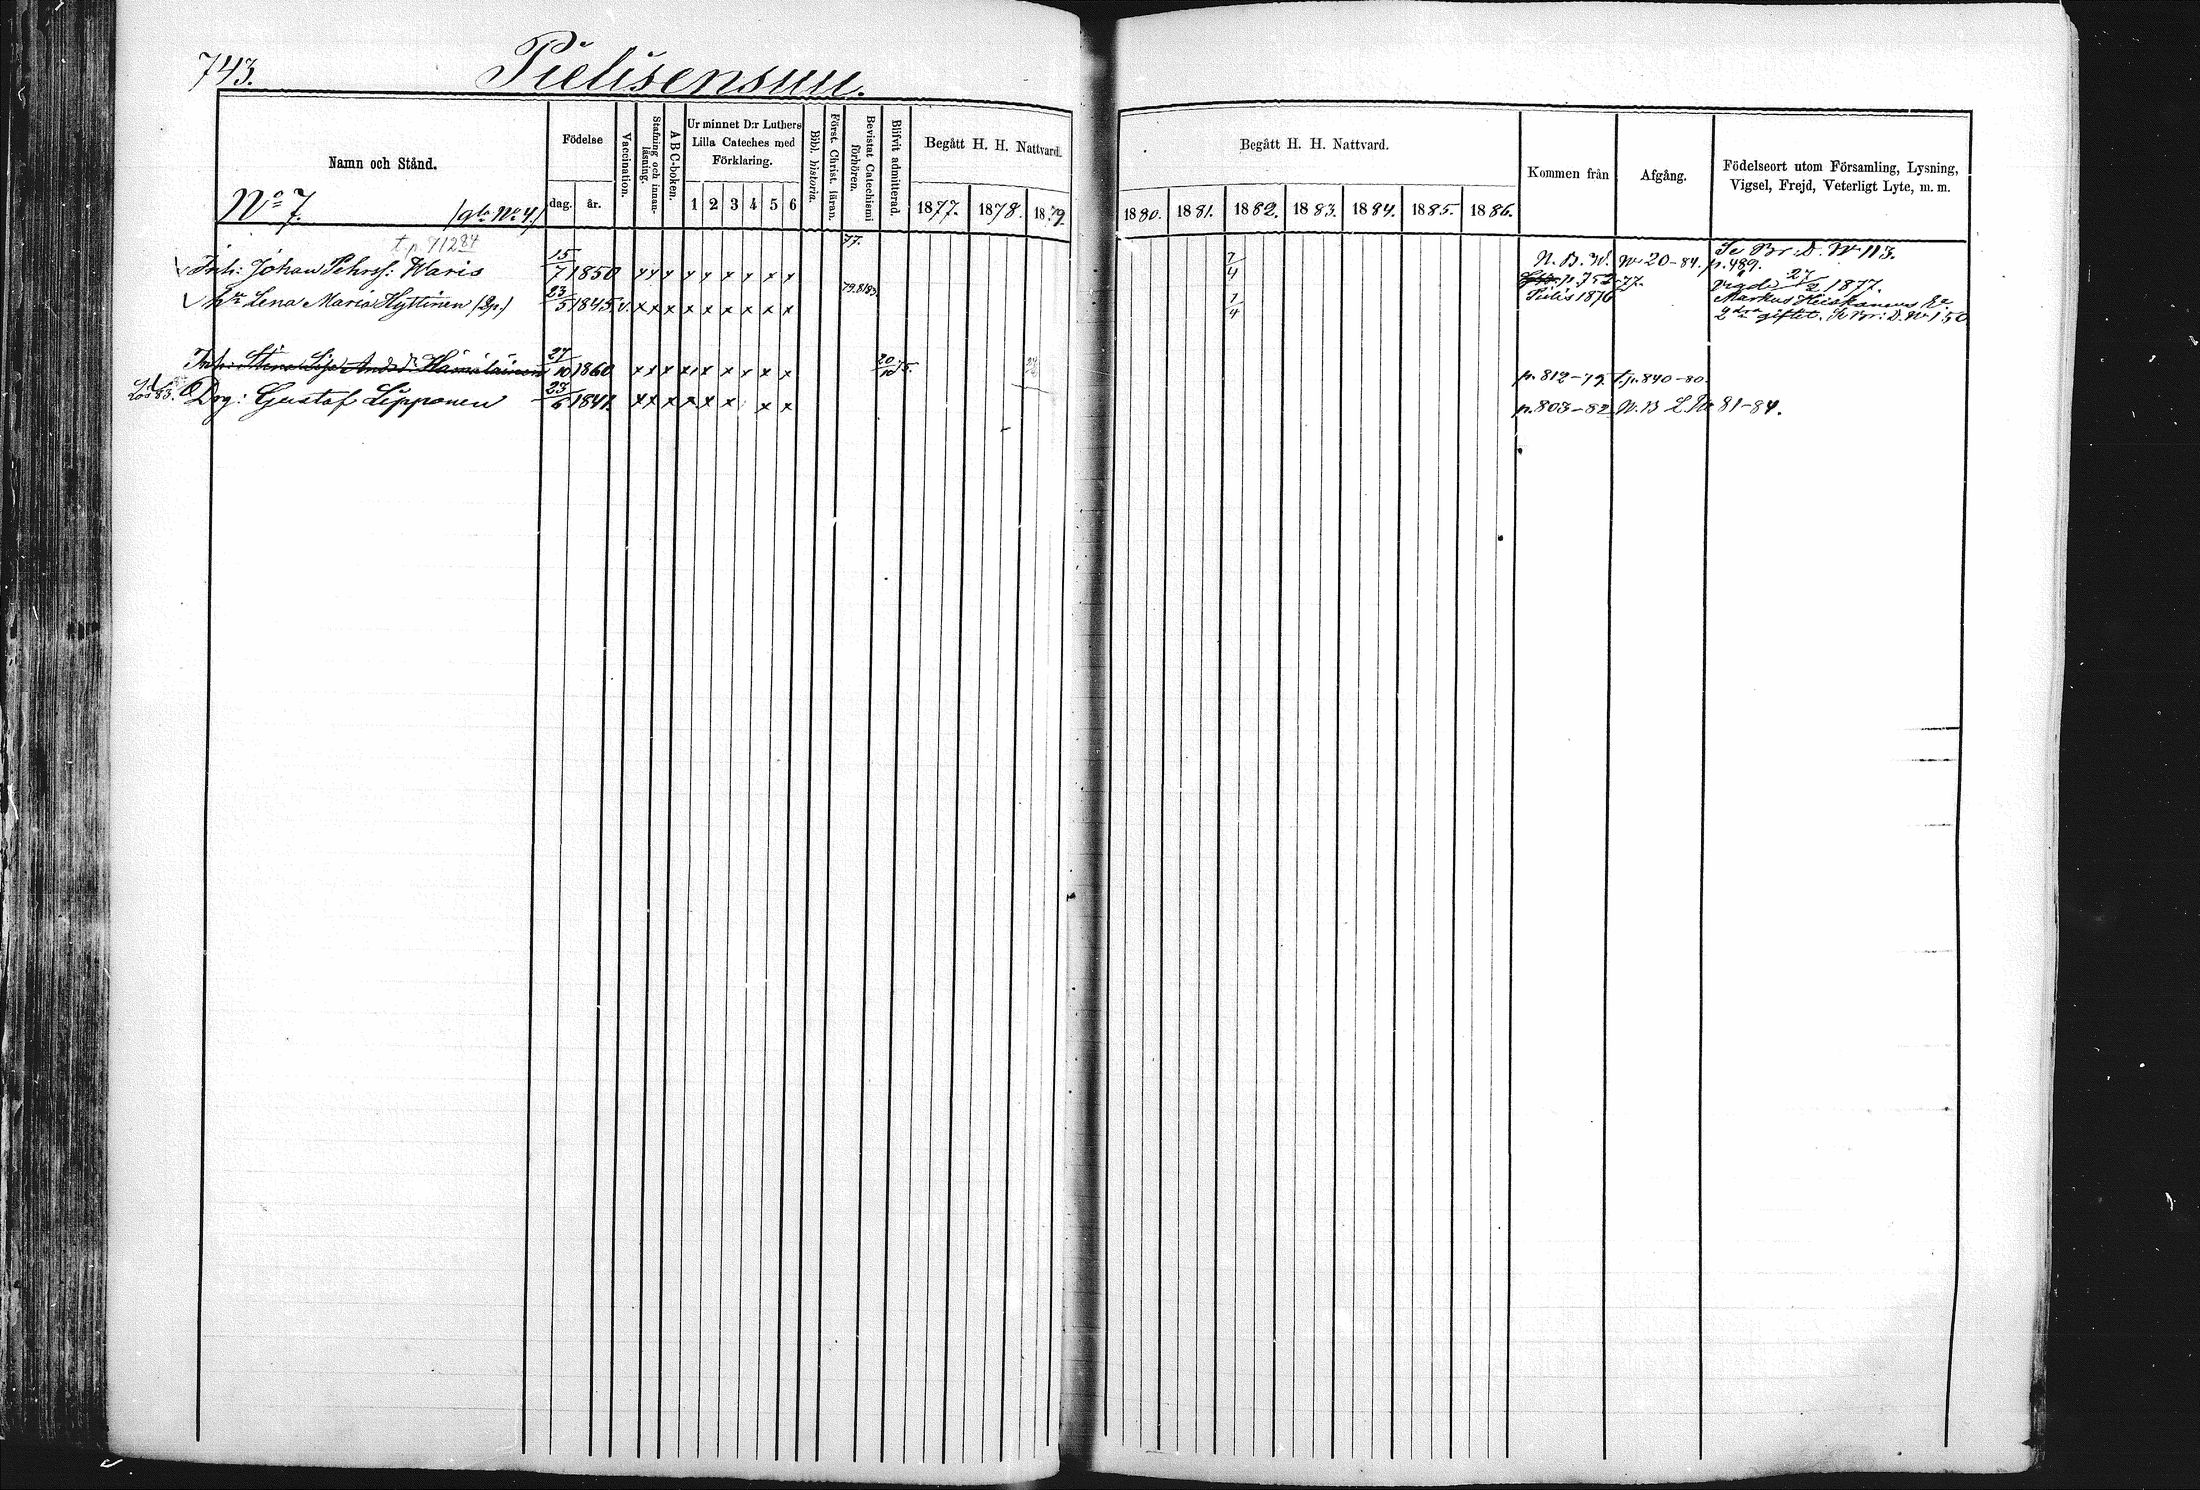 743.
Pielisensuu.
Namn och Stånd.
Födelse
dag.
år.
Vaccination.
Stafning och innanläsning.
A B C-boken.
Ur minnet D:r Luthers
Lilla Cateches med
Förklaring.
1 2 3 4 5 6
Bibl. historia.
Först. Christ. läran.
Bevistat Catechismi förhören.
Blifvit admitterad.
Begått H. H. Nattvard.
1877. 1878. 1879.
Begått H. H. Nattvard.
1880. 1881. 1882. 1883. 1884. 1885. 1886.
Kommen från
Afgång.
Födelseort utom Församling, Lysning,
Vigsel, Frejd, Veterligt Lyte, m. m.
No 7. (gla No 4)
t. p. 712 84
77.
Inh: Johan Pehrss: Waris 15/7 1850 x x x x x x x x x 7/4 N. B. W. No 20-84. Se Br: D. No 113.
p. 489.
p. 752-77. vigde 27/2 1877.
hu Lena Maria Hyttinen (2g.) 23/5 1845 v. x x x x x x x x x 79.81.83. 7/4 Pielis 1876 Markus
2dra giftet. Se Br: D. No 150
Inh: Stina Lisa Andsdr Hämäläinen 27/10 1860 x x x x x x x x x 20/10 75. p. 812-79. t. p. 840-80.
83. Drg: Gustaf Lipponen 23/6 1841. x x x x x x x x p. 803-82. N. B L. No 81-84.